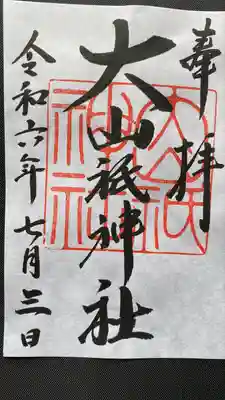 奉拝
大山祇神社
令和六年七月三日